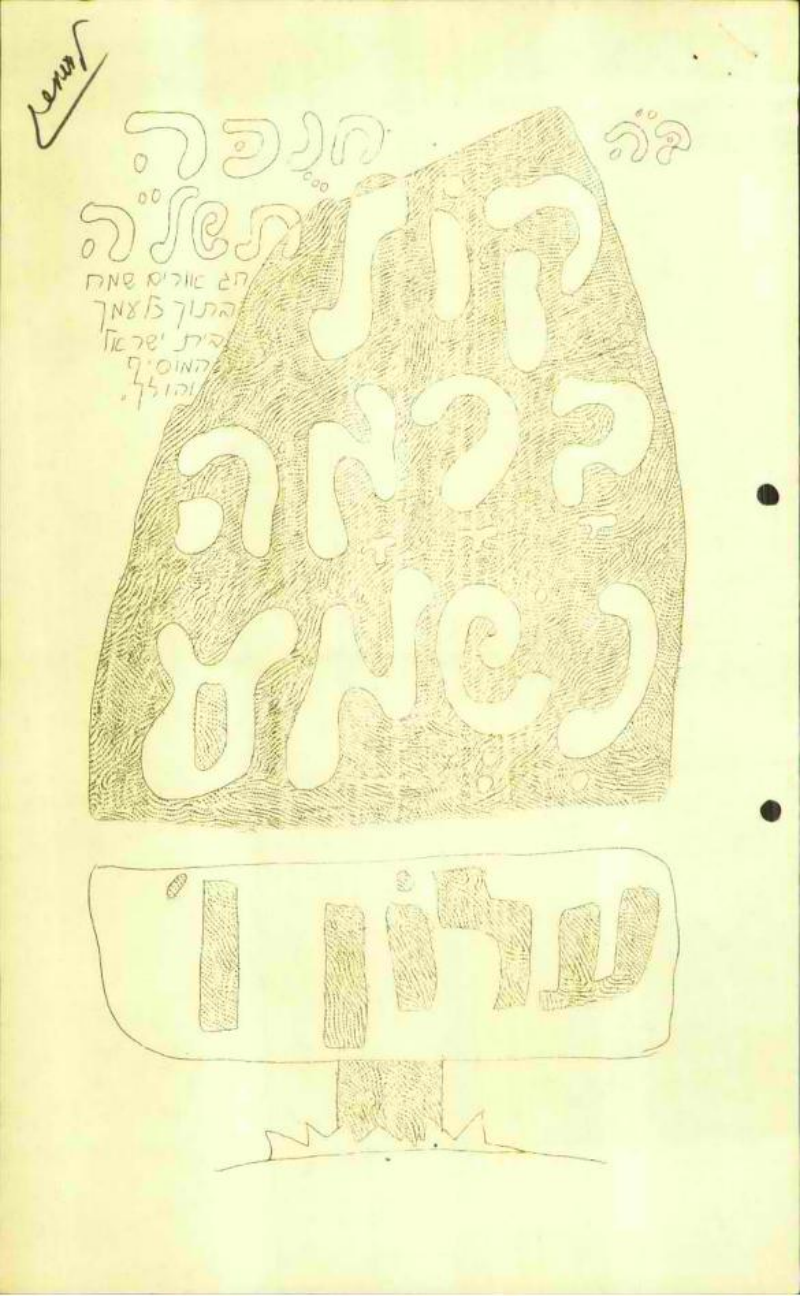 ב"ה
חנכה
תשל"ה
חג אורים שמח
בתוך כל עמך
בית ישראל
המוסיף
והולך.
קול
ברמה
נשמע
עלון ו'